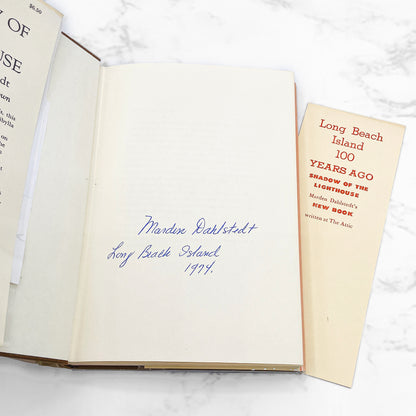 $6.50
OF
USE
dt
wn
s, this
on
Marden Dahlstedt
Long Beach Island
1974.
Long Beach
Island
100
YEARS AGO
SHADOW OF THE
LIGHTHOUSE
Marden Dahlstedt's
NEW BOOK
written at The Attic